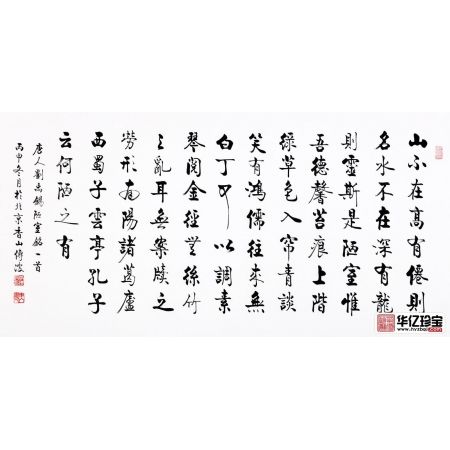 山不在高有僊則
名水不在深有龍
則靈斯是陋室惟
吾德馨苔痕上階
緑草色入帘青談
笑有鴻儒往來無
白丁可以調素
琴閱金經無絲竹
之亂耳無案牘之
勞形南陽諸葛廬
西蜀子雲亭孔子
云何陋之有
唐人劉禹錫陋室銘一首
丙申冬月於北京香山
华亿珍宝